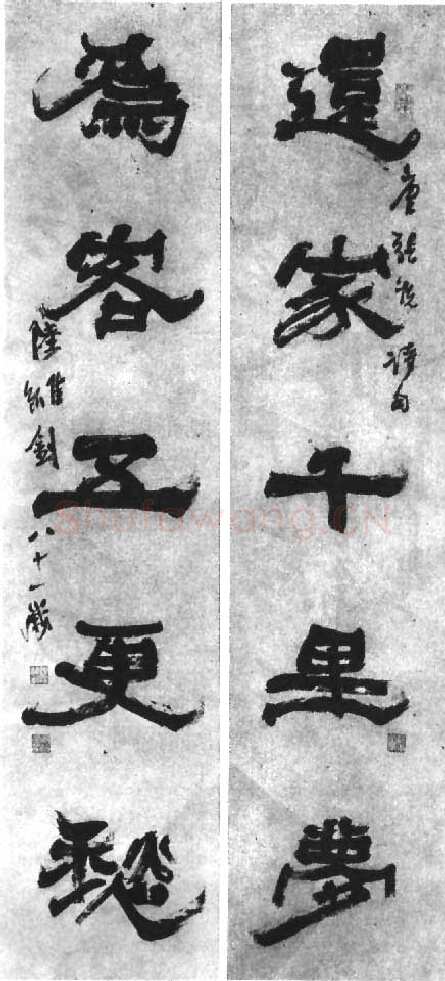 還家千里夢
唐張説詩句
爲客五更愁
陸維釗八十一歲
shufawang.CN